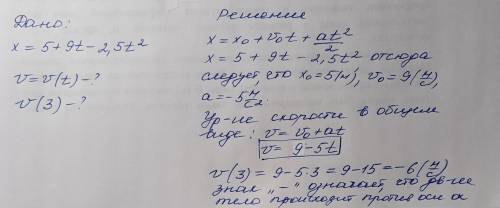 Дано:
x = 5 + 9t - 2,5t²
v = v(t) - ?
v(3) - ?
Решение
x = x₀ + v₀t + at²/2
x = 5 + 9t - 2,5t² отсюда
следует, что x₀ = 5(м), v₀ = 9(м/с),
a = -5 м/с².
Ур-ие скорости в общем
виде: v = v₀ + at
v = 9 - 5t
v(3) = 9 - 5·3 = 9 - 15 = -6(м/с)
знак „-" означает, что дв-ие
тела происходит против оси ox